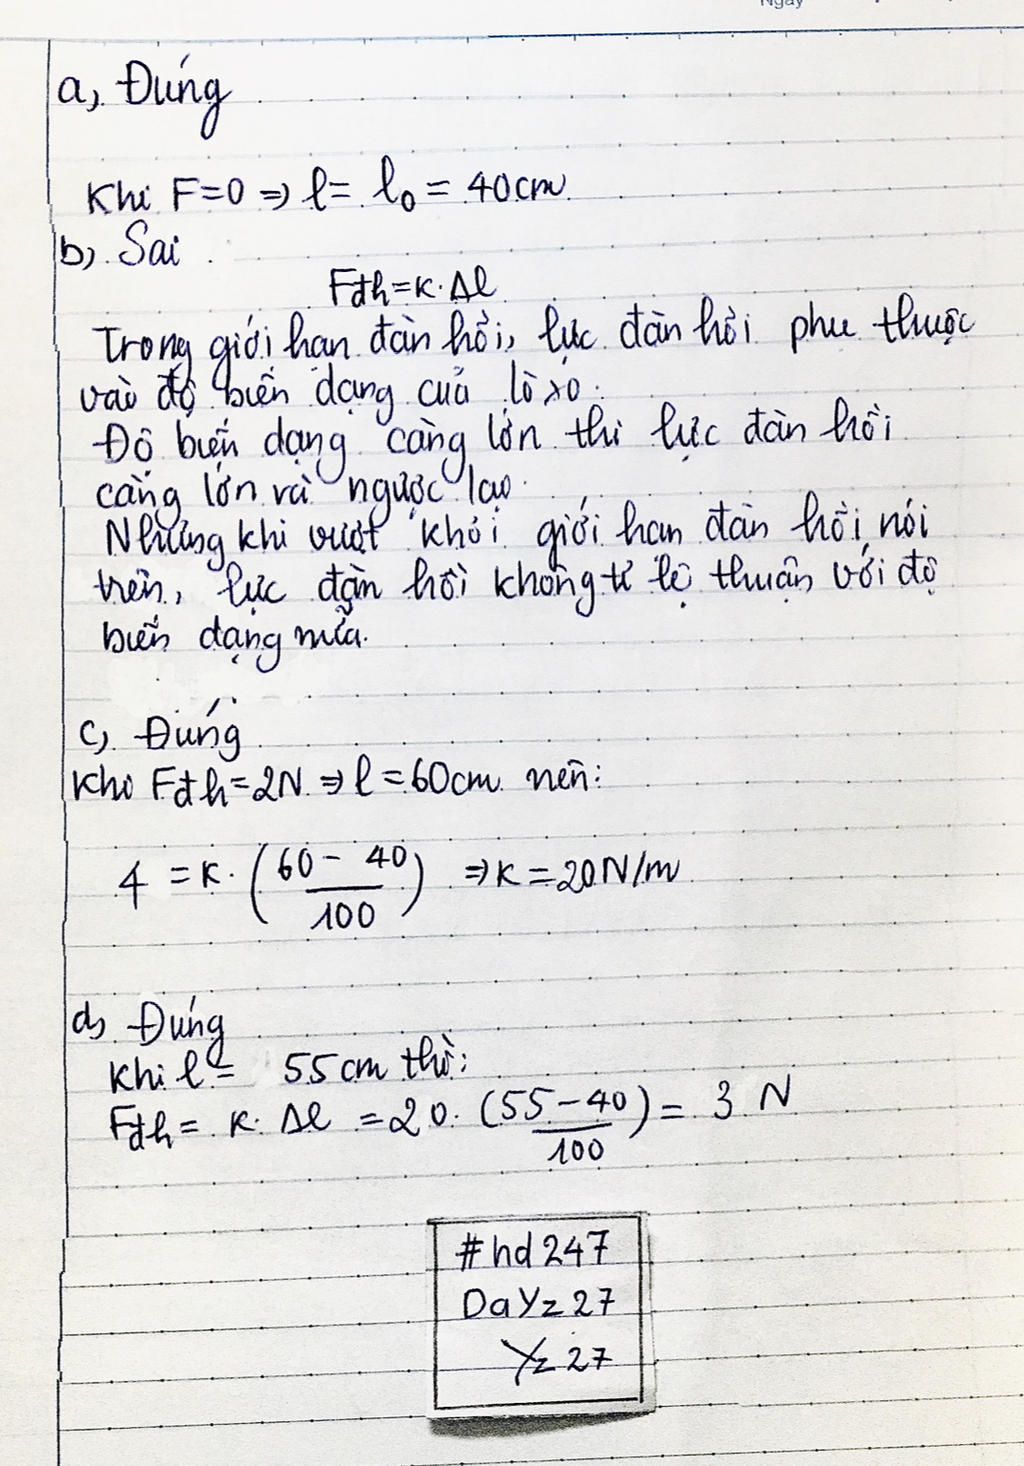 Ngày
a, Đúng
Khi F=0 => l = l₀ = 40cm
b, Sai
Fđh=K.Δl
Trong giới hạn đàn hồi, lực đàn hồi phu thuộc
vào độ biến dạng cuả lò xo.
Độ biến dạng càng lớn thì lực đàn hồi
càng lớn và ngược lại.
Nhưng khi vượt khỏi giới hạn đàn hồi nói
trên, lực đàn hồi không tỉ lệ thuận với độ
biến dạng nữa.
c, Đúng
Khi Fđh=2N => l = 60cm nên:
4 = K. (60 - 40 / 100) => K = 20N/m
d, Đúng
Khi l = 55cm thì:
Fđh = K. Δl = 20. (55-40 / 100) = 3 N
#hd247
DaYz27
Yz27